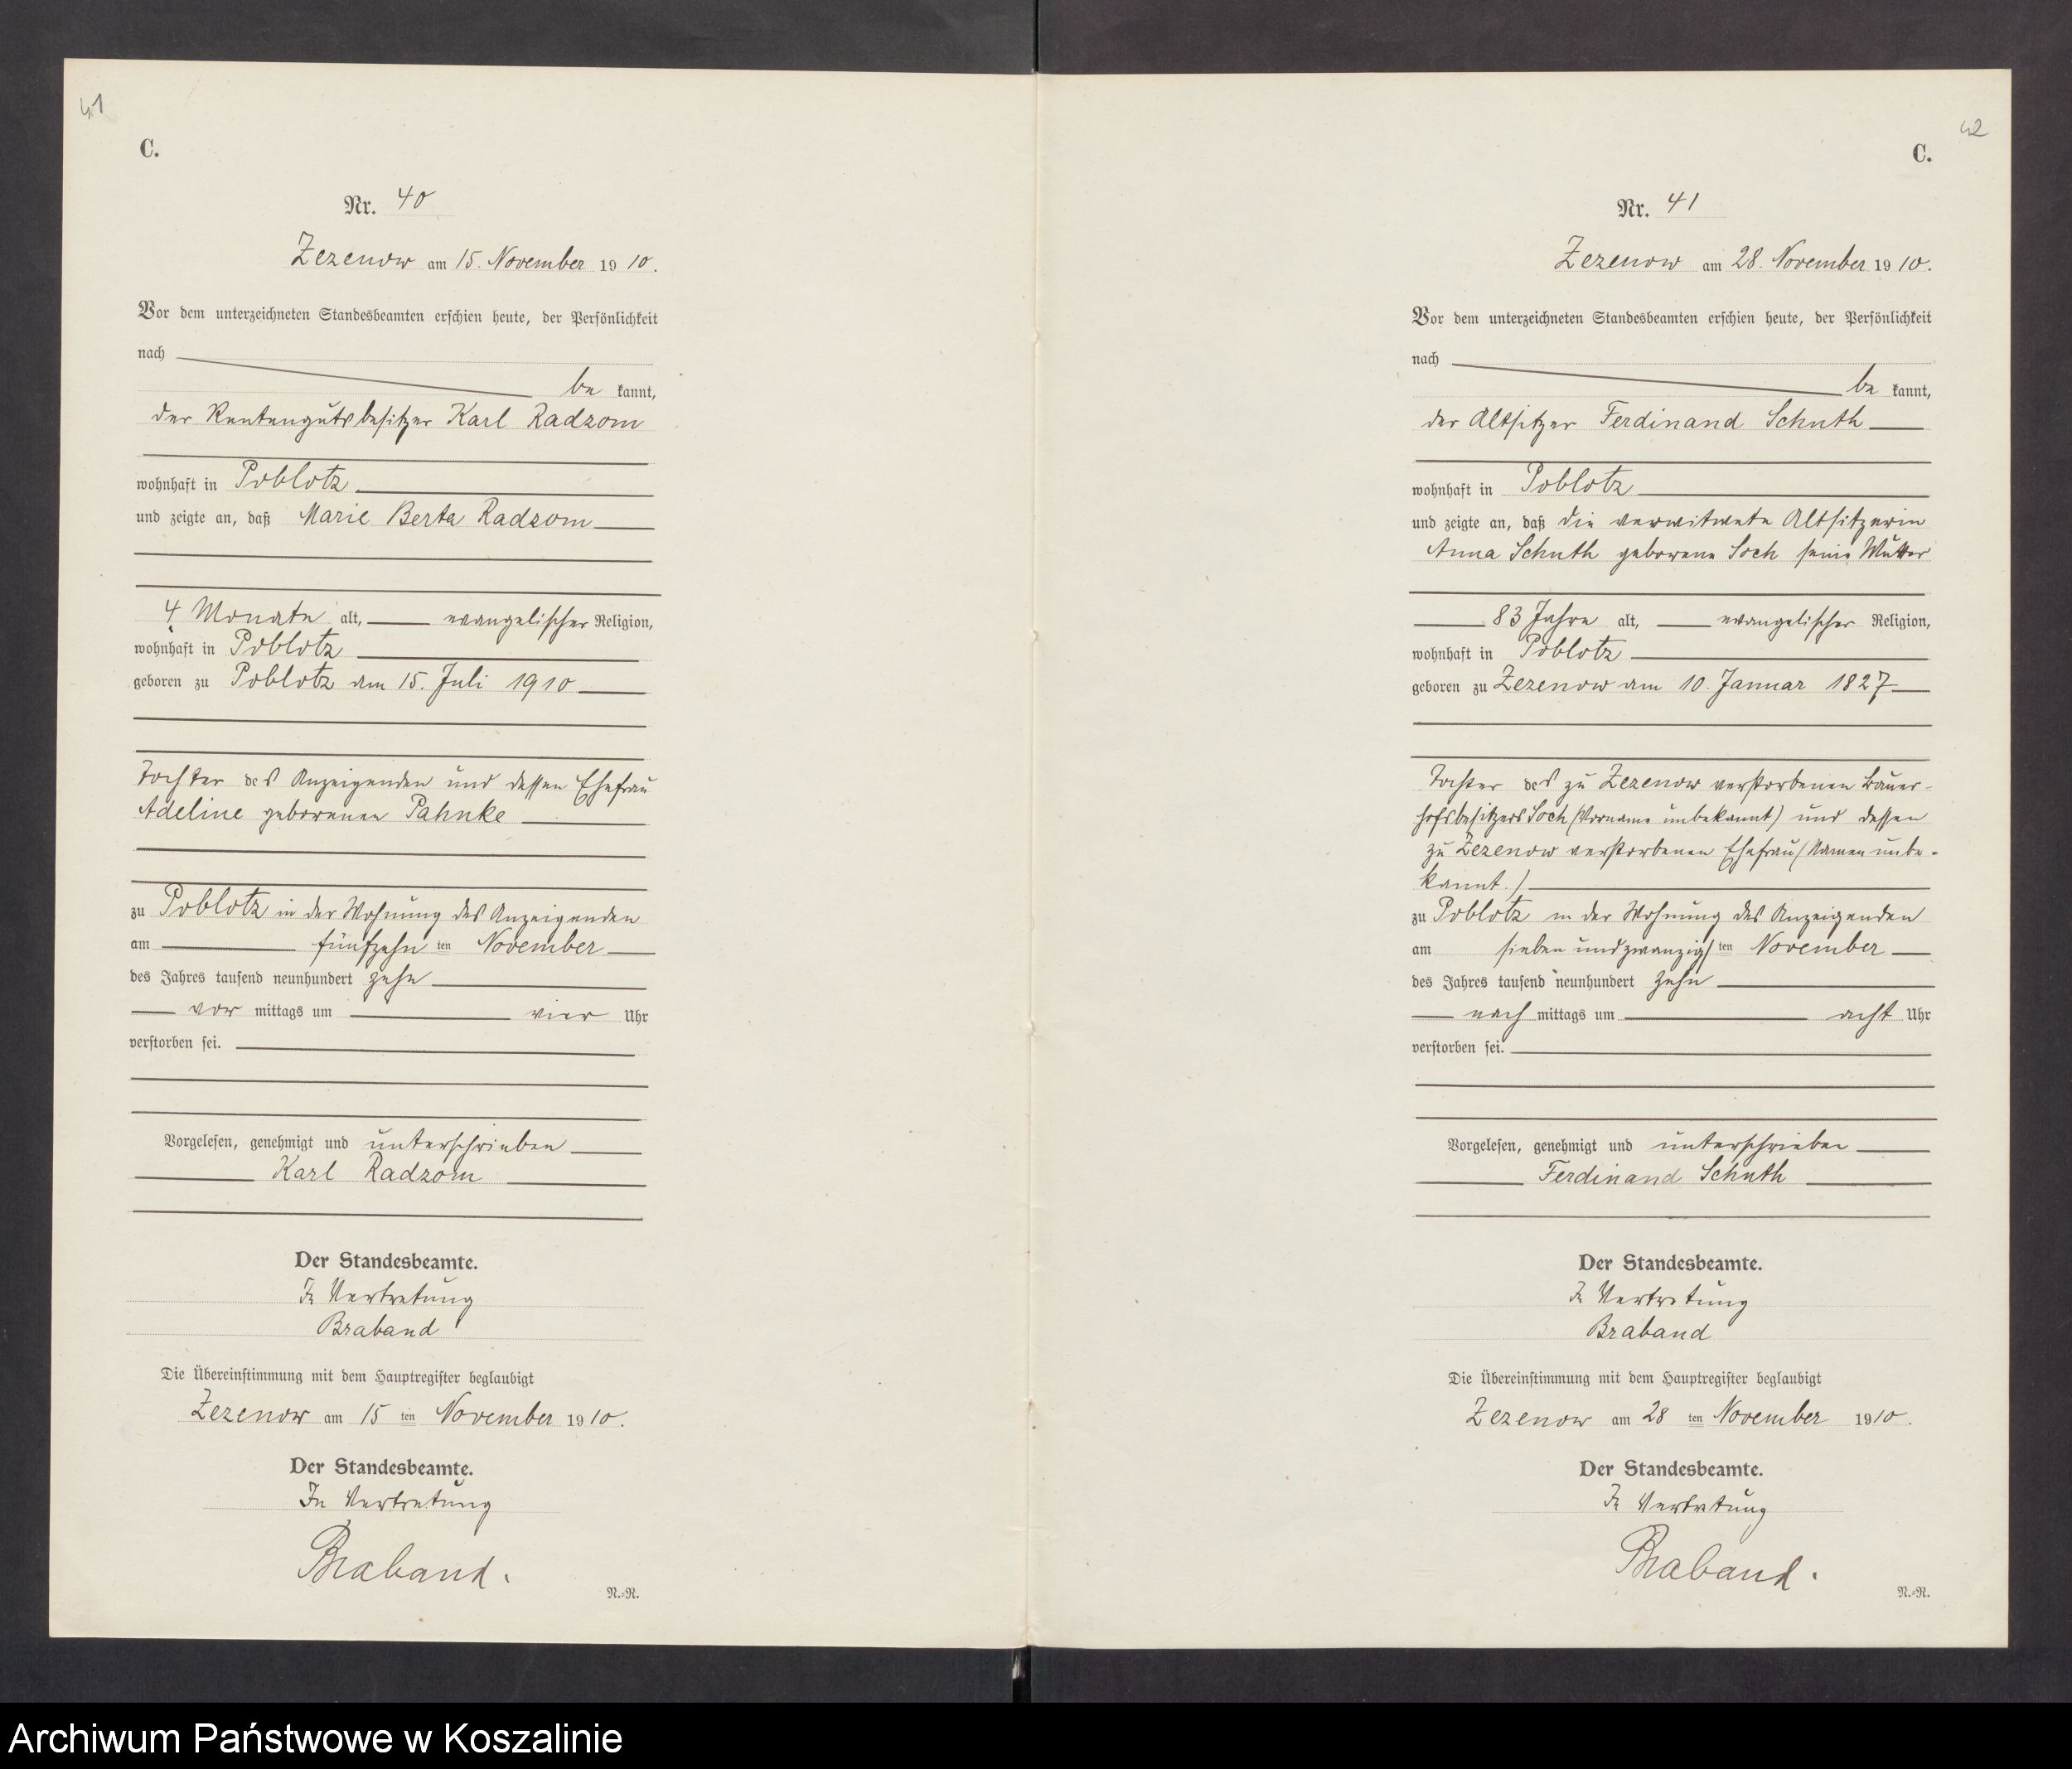 41
C.
Nr. 40
Zezenow am 15. November 1910.
Vor dem unterzeichneten Standesbeamten erschien heute, der Persönlichkeit
nach
be kannt,
der Rentengutsbesitzer Karl Radzom
wohnhaft in Poblotz
und zeigte an, daß Marie Berta Radzom
4 Monate alt, evangelischer Religion,
wohnhaft in Poblotz
geboren zu Poblotz am 15. Juli 1910
Tochter des Anzeigenden und dessen Ehefrau
Adeline geborenen Pahnke
zu Poblotz in der Wohnung des Anzeigenden
am fünfzehn ten November
des Jahres tausend neunhundert zehn
vor mittags um vier Uhr
verstorben sei.
Vorgelesen, genehmigt und unterschrieben
Karl Radzom
Der Standesbeamte.
In Vertretung
Braband
Die Übereinstimmung mit dem Hauptregister beglaubigt
Zezenow am 15 ten November 1910.
Der Standesbeamte.
In Vertretung
Braband.
N.=R.
42
C.
Nr. 41
Zezenow am 28. November 1910.
Vor dem unterzeichneten Standesbeamten erschien heute, der Persönlichkeit
nach
be kannt,
der Altsitzer Ferdinand Schuth
wohnhaft in Poblotz
und zeigte an, daß die verwitwete Altsitzerin
Anna Schuth geborene Soch seine Mutter
83 Jahre alt, evangelischer Religion,
wohnhaft in Poblotz
geboren zu Zezenow am 10. Januar 1827
Tochter des zu Zezenow verstorbenen Bauer-
hofsbesitzers Soch (Vorname unbekannt) und dessen
zu Zezenow verstorbenen Ehefrau (Namen unbe-
kannt.)
zu Poblotz in der Wohnung des Anzeigenden
am siebenundzwanzigs ten November
des Jahres tausend neunhundert zehn
nach mittags um acht Uhr
verstorben sei.
Vorgelesen, genehmigt und unterschrieben
Ferdinand Schuth
Der Standesbeamte.
In Vertretung
Braband
Die Übereinstimmung mit dem Hauptregister beglaubigt
Zezenow am 28 ten November 1910.
Der Standesbeamte.
In Vertretung
Braband.
N.=R.
Archiwum Państwowe w Koszalinie